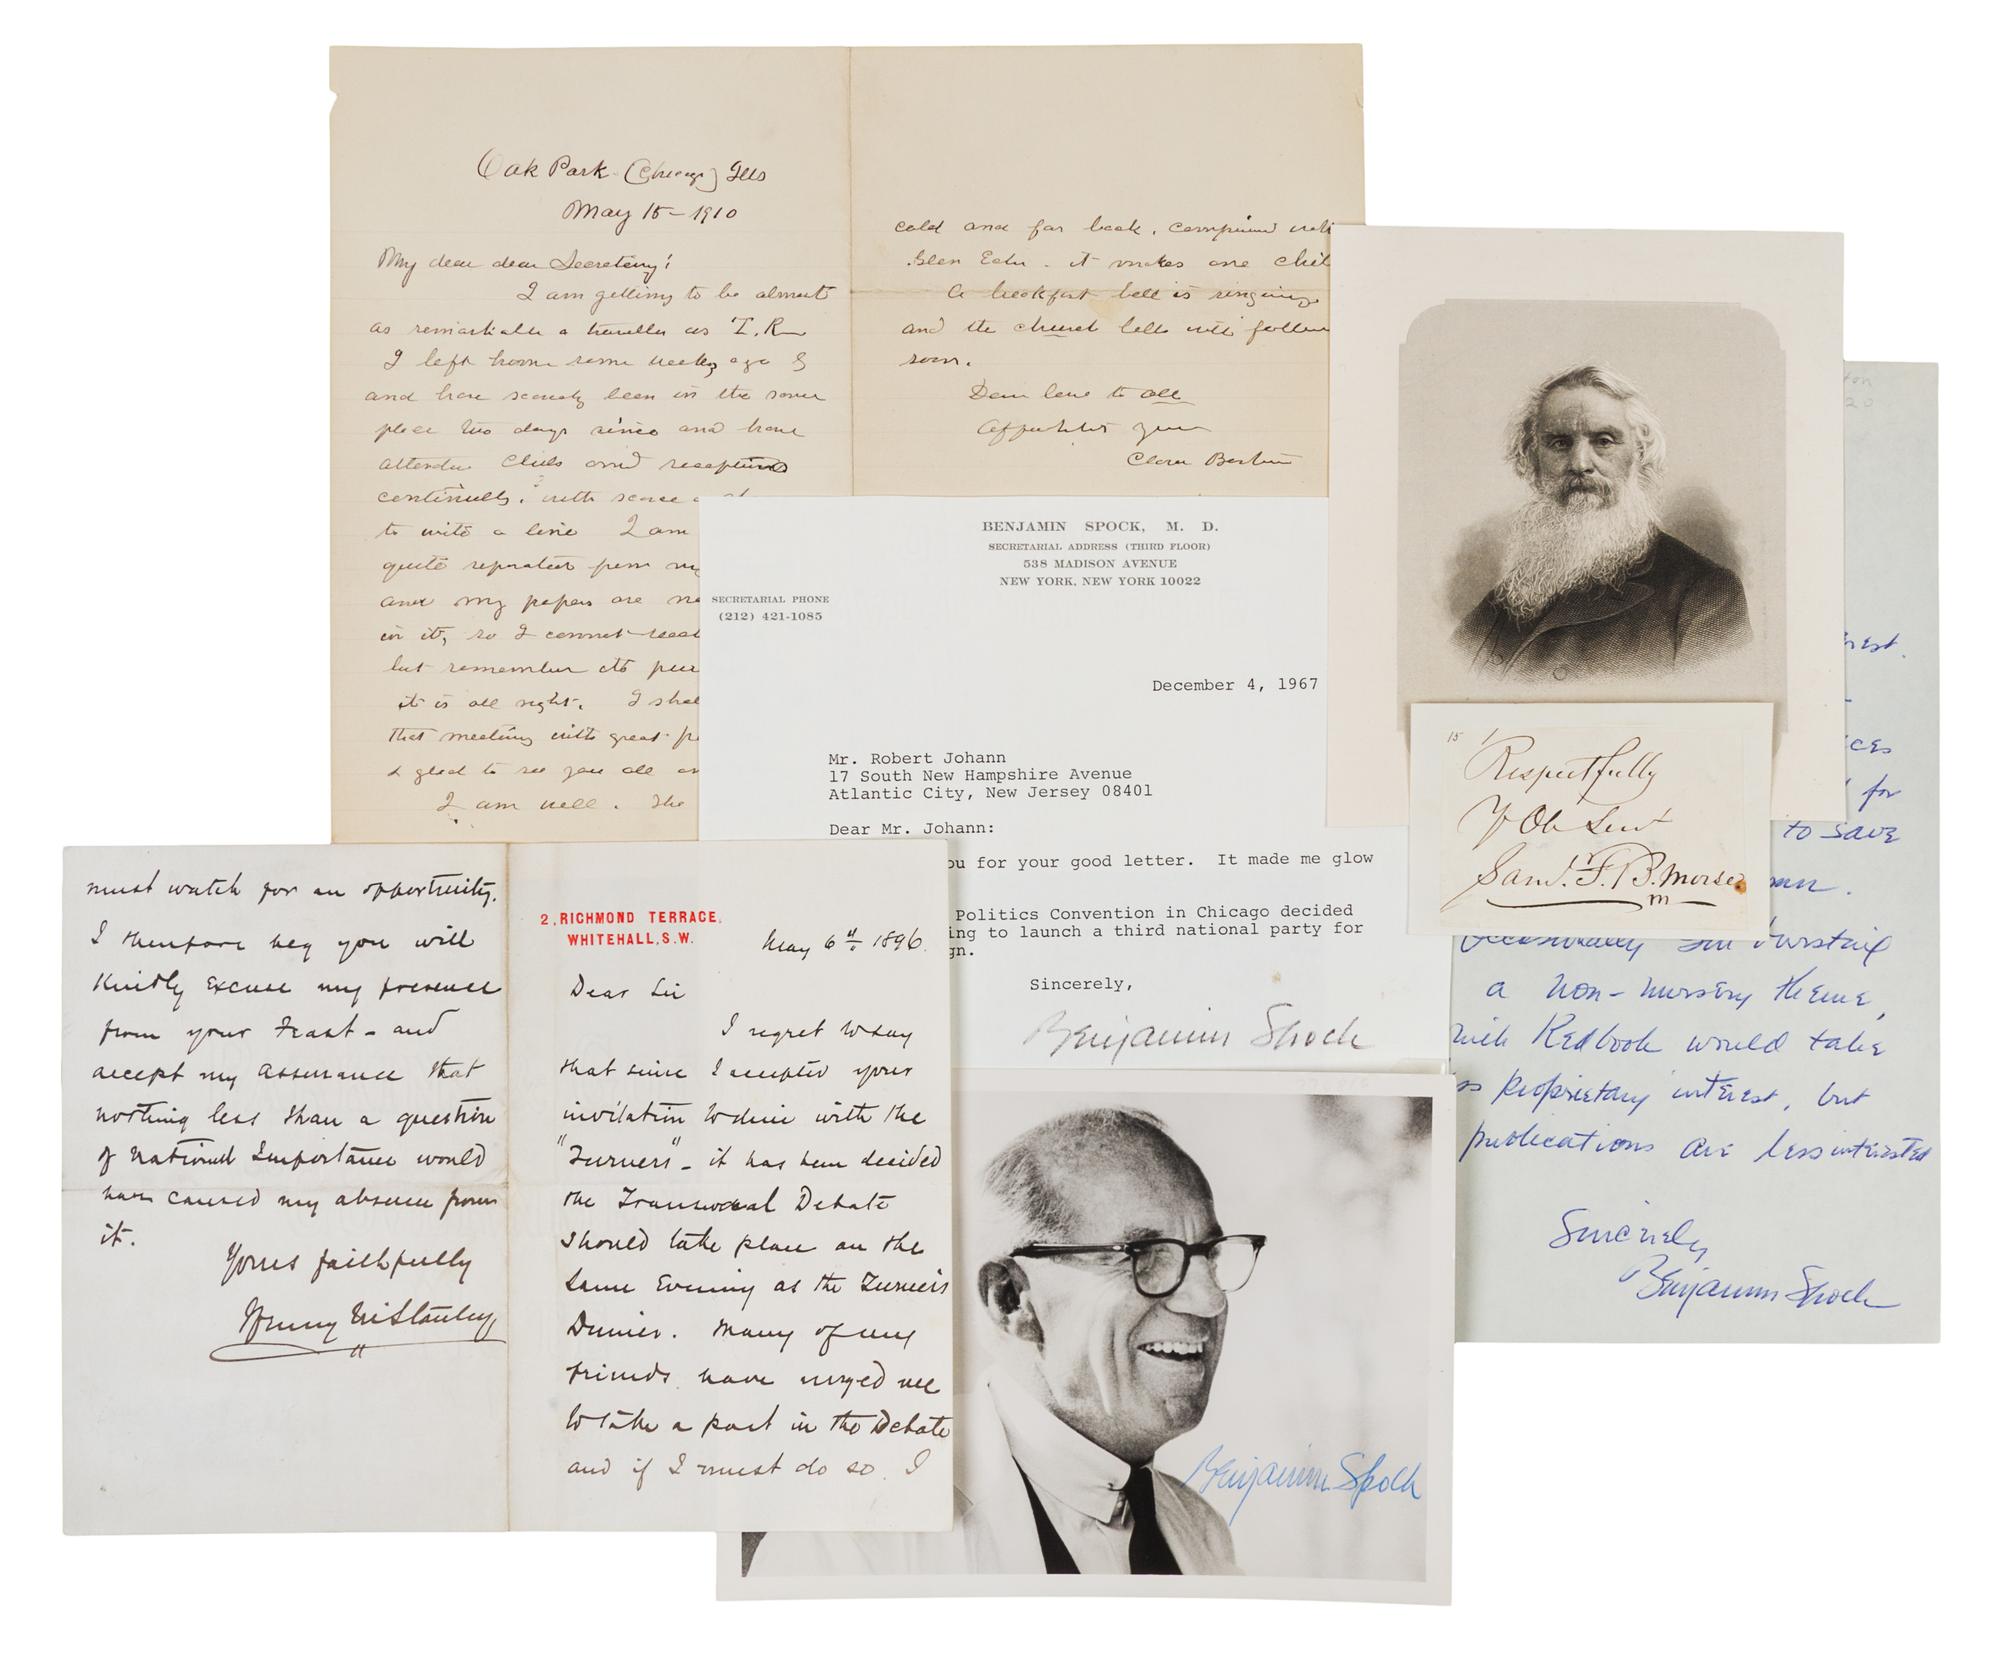 Oak Park (Chicago) Ills
May 15-1910
My dear dear Secretary!
I am getting to be almost
as remarkable a traveller as T.R.
I left home some weeks ago &
and have scarcely been in the same
place two days since and have
attended Clubs and receptions
continually, with scarce a
to write a line I am
quite
and my papers are
in it, so I cannot
but remember its
it is all right. I
that meeting with great
& glad to see you all
I am well. The
cold and far back, compared
Glen Echo - it makes one
A breakfast bell is ringing
and the church bells will follow
soon.
Dear love to all
Clara Barton
BENJAMIN SPOCK, M. D.
SECRETARIAL ADDRESS (THIRD FLOOR)
538 MADISON AVENUE
NEW YORK, NEW YORK 10022
SECRETARIAL PHONE
(212) 421-1085
December 4, 1967
Mr. Robert Johann
17 South New Hampshire Avenue
Atlantic City, New Jersey 08401
Dear Mr. Johann:
for your good letter. It made me glow
Politics Convention in Chicago decided
to launch a third national party for
Sincerely,
Benjamin Spock
15
Respectfully
Yr Ob Servt
Saml. F. B. Morse
for
to save
Occasionally I'm bursting
a non-nursery theme,
Redbook would take
proprietary interest, but
publications are less interested
Sincerely
Benjamin Spock
must watch for an opportunity.
I therefore beg you will
Kindly Excuse my presence
from your Feast - and
accept my assurance that
nothing less than a question
of National Importance would
have caused my absence from
it.
Yours faithfully
Henry M Stanley
2, RICHMOND TERRACE,
WHITEHALL, S.W.
May 6th 1896.
Dear Sir
I regret to say
that since I accepted your
invitation to dine with the
"Turners" - it has been decided
the Transvaal Debate
should take place on the
same Evening as the Turners
Dinner. Many of my
friends have urged me
to take a part in the Debate
and if I must do so I
Benjamin Spock